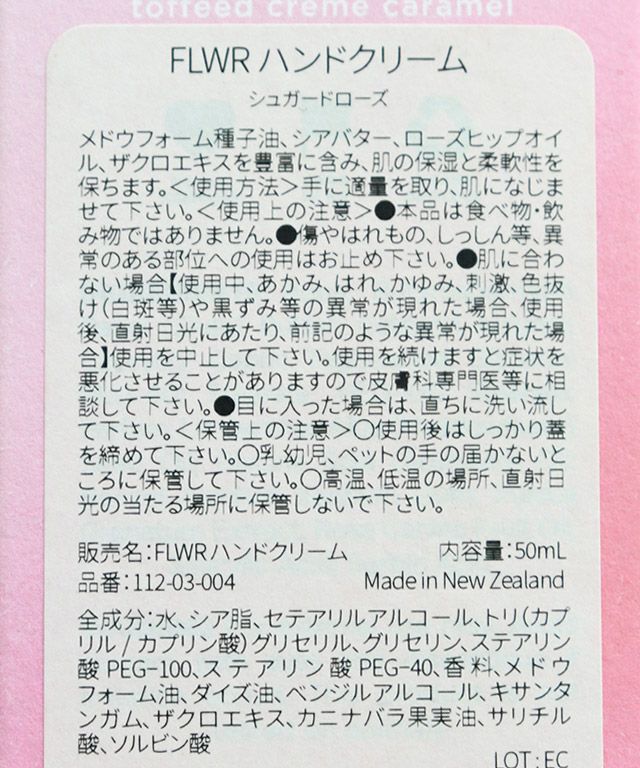 toffeed creme caramel
FLWR ハンドクリーム
シュガードローズ
メドウフォーム種子油、シアバター、ローズヒップオイ
ル、ザクロエキスを豊富に含み、肌の保湿と柔軟性を
保ちます。＜使用方法＞手に適量を取り、肌になじま
せて下さい。＜使用上の注意＞●本品は食べ物・飲
み物ではありません。●傷やはれもの、しっしん等、異
常のある部位への使用はお止め下さい。●肌に合わ
ない場合【使用中、あかみ、はれ、かゆみ、刺激、色抜
け(白斑等)や黒ずみ等の異常が現れた場合、使用
後、直射日光にあたり、前記のような異常が現れた場
合】使用を中止して下さい。使用を続けますと症状を
悪化させることがありますので皮膚科専門医等に相
談して下さい。●目に入った場合は、直ちに洗い流し
て下さい。＜保管上の注意＞〇使用後はしっかり蓋
を締めて下さい。〇乳幼児、ペットの手の届かないと
ころに保管して下さい。〇高温、低温の場所、直射日
光の当たる場所に保管しないで下さい。
販売名:FLWRハンドクリーム 内容量:50mL
品番:112-03-004 Made in New Zealand
全成分:水、シア脂、セテアリルアルコール、トリ(カプ
リル / カプリン酸)グリセリル、グリセリン、ステアリン
酸PEG-100、ステアリン酸PEG-40、香料、メドウ
フォーム油、ダイズ油、ベンジルアルコール、キサンタ
ンガム、ザクロエキス、カニナバラ果実油、サリチル
酸、ソルビン酸
LOT : EC